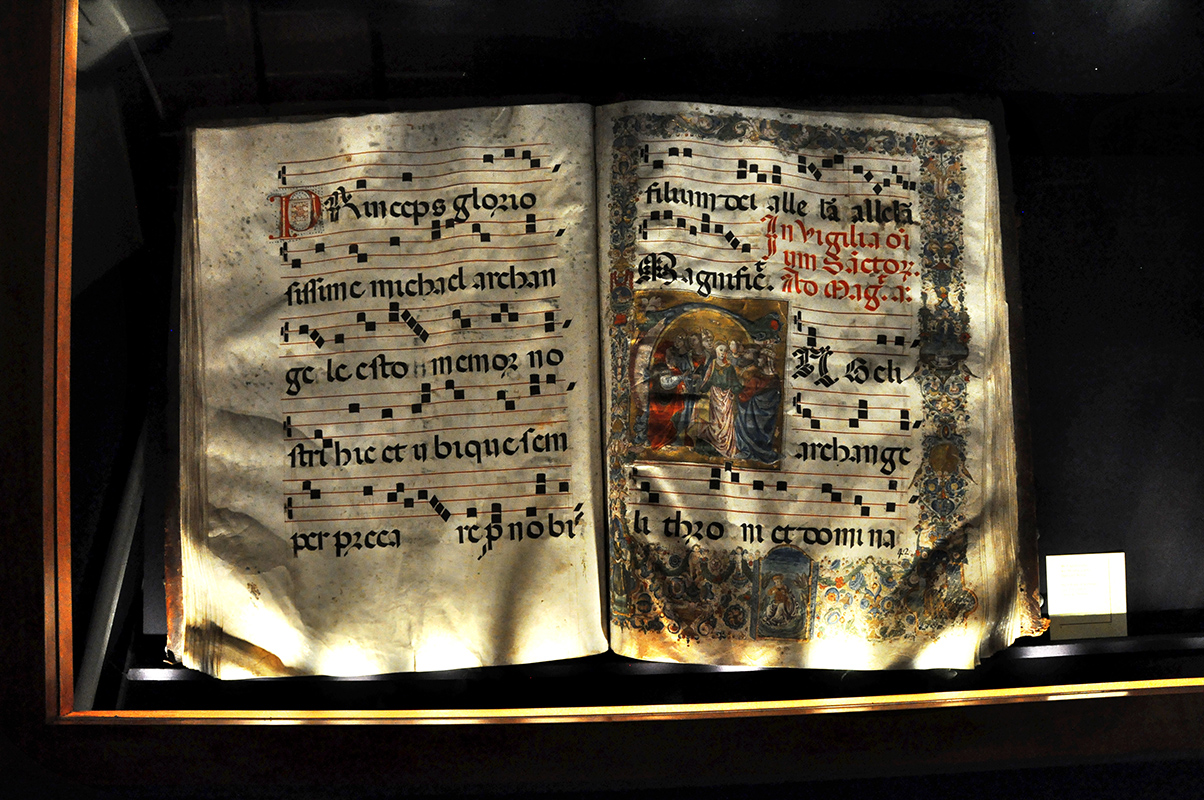 Princeps glorio
sissime michael archan
ge le esto memor no
stri hic et ubique sem
per preca re p nobis
filium dei alle lã allelã
In vigilia oi
um Sãctoꝝ.
Ad Mag. a:
Magnific̃.
Ngeli
archange
li thro ni et domina
42